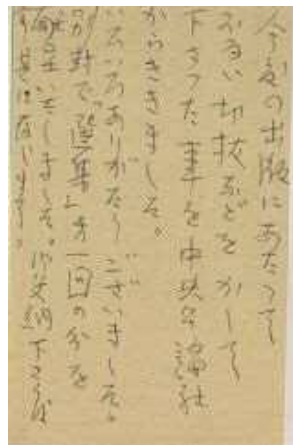 今度の出版にあたつて
ふるい切抜などをかして
下さつた事を中央公論社
からききました。
いろいろありがたうございました。
別封で「選集」第一回の分を
いたしました。御笑納下さらば